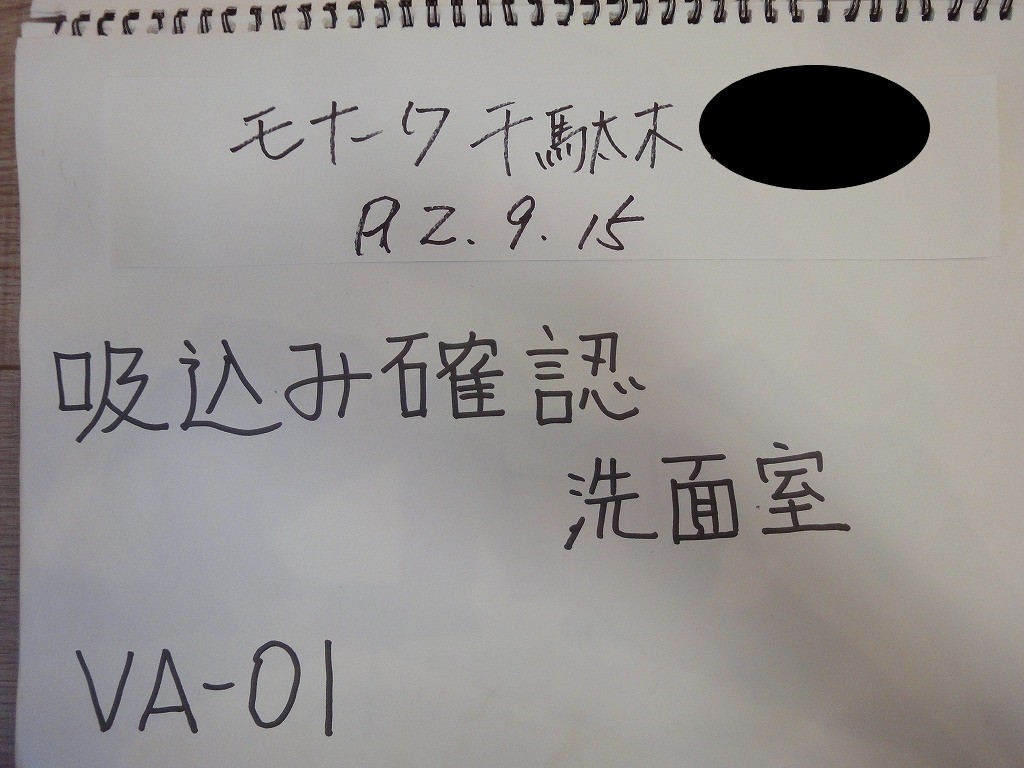 モナーク千駄木
R2.9.15
吸込み確認
洗面室
VA-01